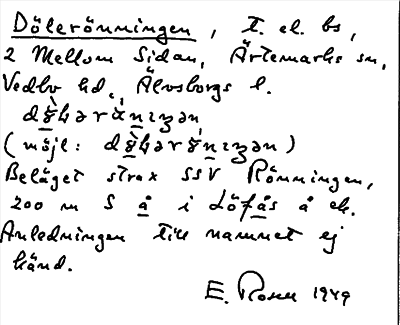 Dölerönningen, t. el. bs,
2 Mellom Sidan, Ärtemarks sn,
Vedbo hd, Älvsborgs l.
(möjl:
Beläget strax SSV Rönningen,
200 m S å i Löfås å ek.
Anledningen till namnet ej
känd.
E. Rosell 1949